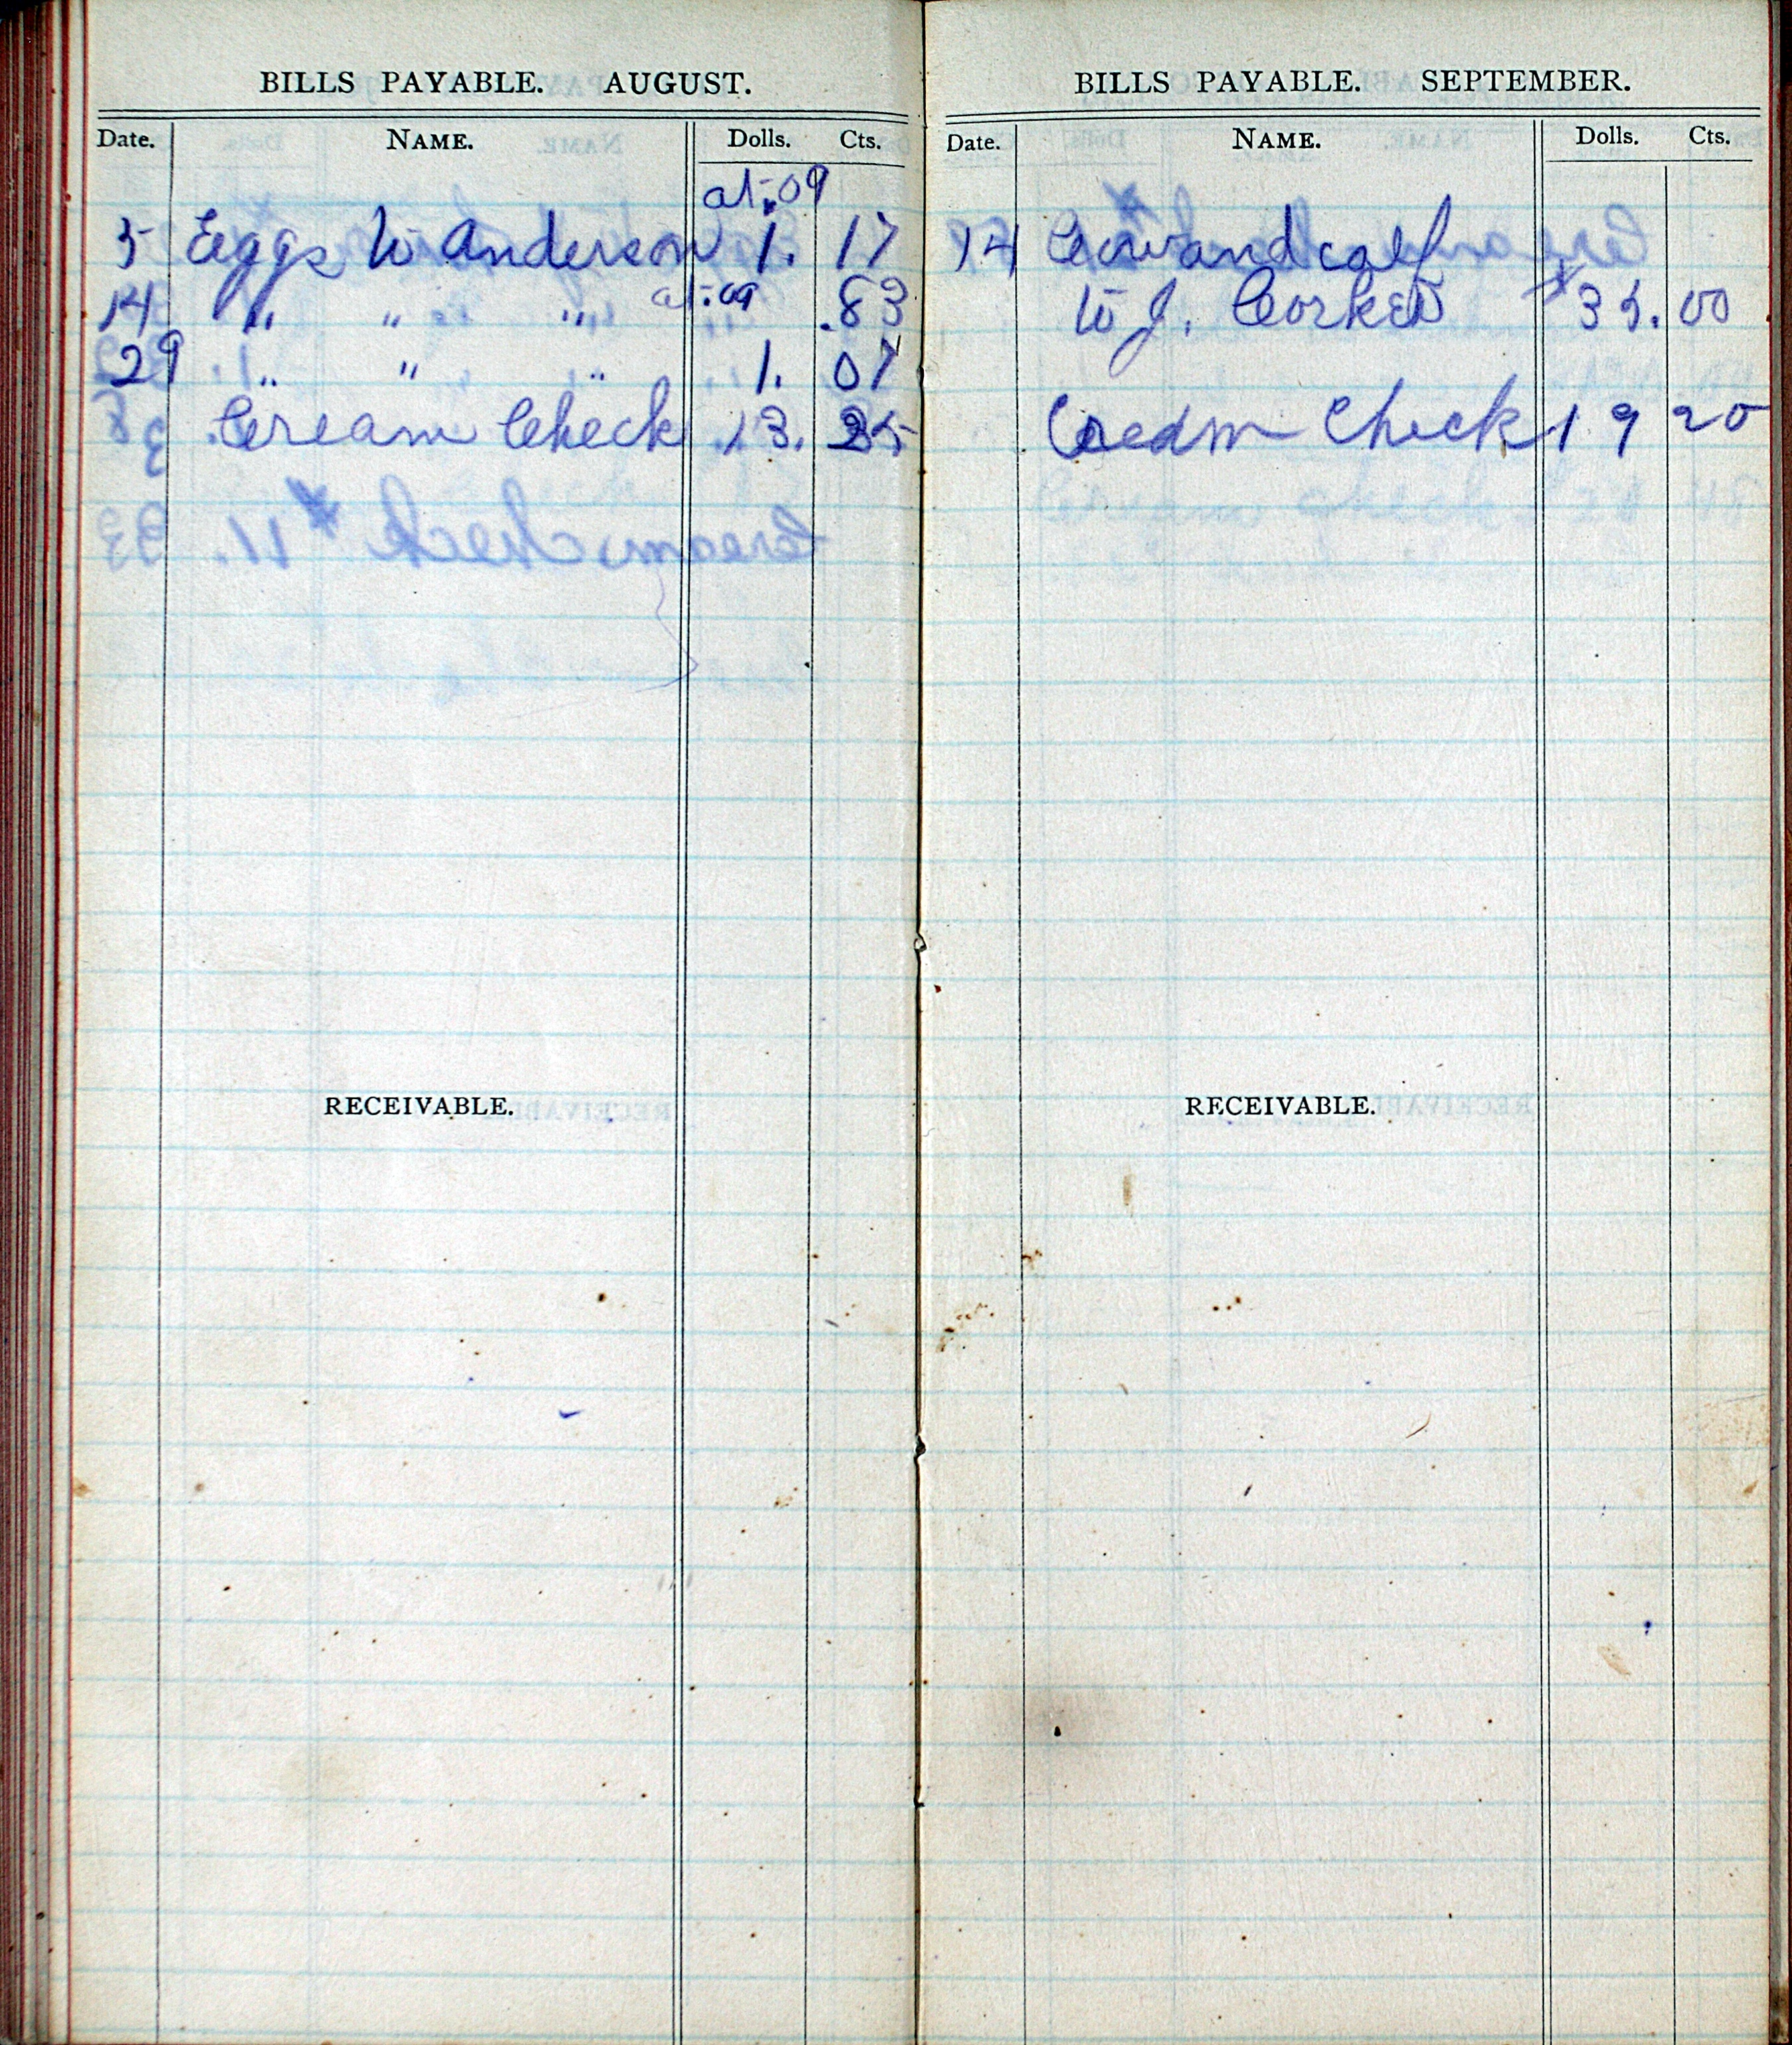 BILLS PAYABLE. AUGUST.
Date. NAME. Dolls. Cts.
at .09
5 Eggs W Anderson 1. 17
14 " " " at .09 .83
29 " " " 1. 07
Cream Check 13. 25
RECEIVABLE.
BILLS PAYABLE. SEPTEMBER.
Date. NAME. Dolls. Cts.
14 Cow and calf
W J. Corker $35.00
Cream Check 19 20
RECEIVABLE.